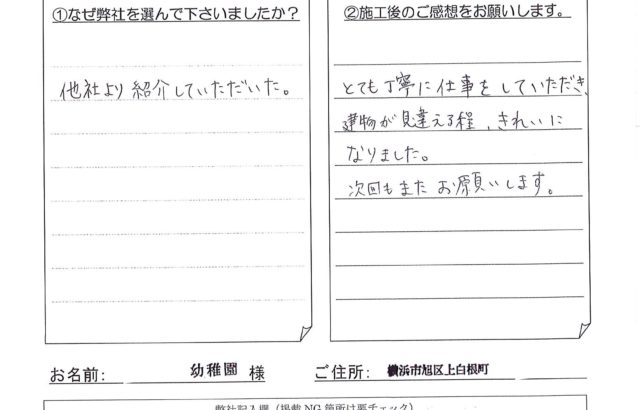 ①なぜ弊社を選んで下さいましたか？
他社より紹介していただいた。
②施工後のご感想をお願いします。
とても丁寧に仕事をしていただき、
建物が見違える程、きれいに
なりました。
次回もまたお願いします。
お名前: 幼稚園 様
ご住所: 横浜市旭区上白根町
弊社記入欄（掲載NG箇所は要チェック）